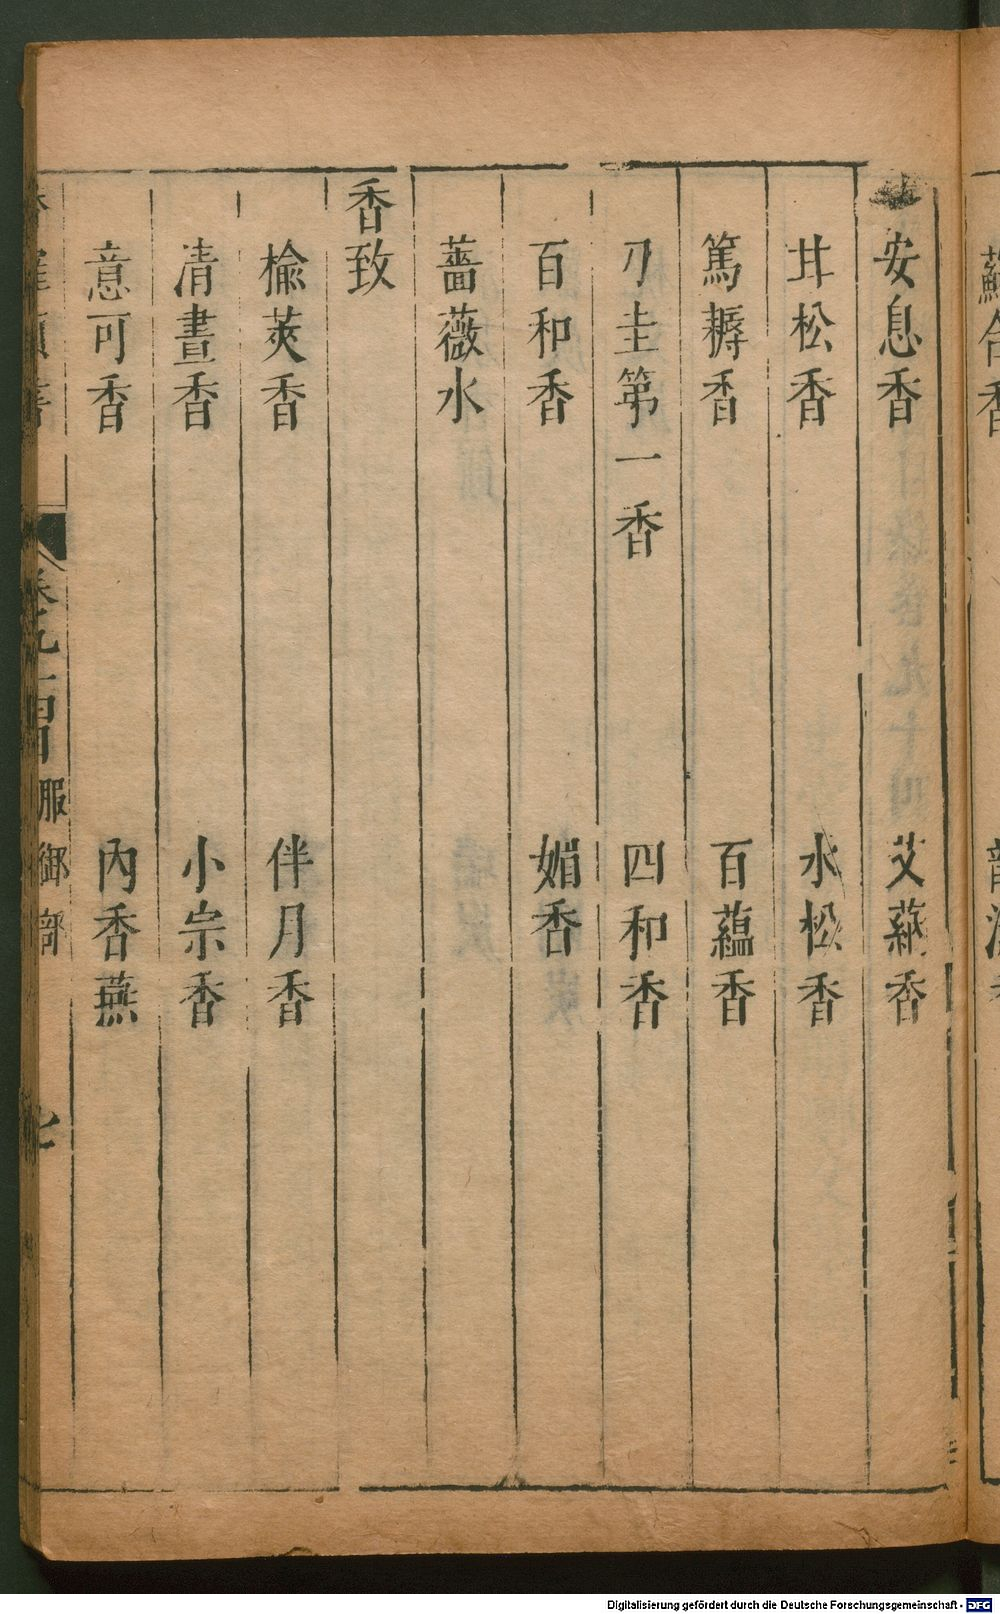 安息香 艾蒳香
甘松香 水松香
篤耨香 百蘊香
刀圭第一香 四和香
百和香 媚香
薔薇水
香致
楡莢香 伴月香
清晝香 小宗香
意可香 內香燕
卷九十四 服御部 七
蘇合香
Digitalisierung gefördert durch die Deutsche Forschungsgemeinschaft - DFG